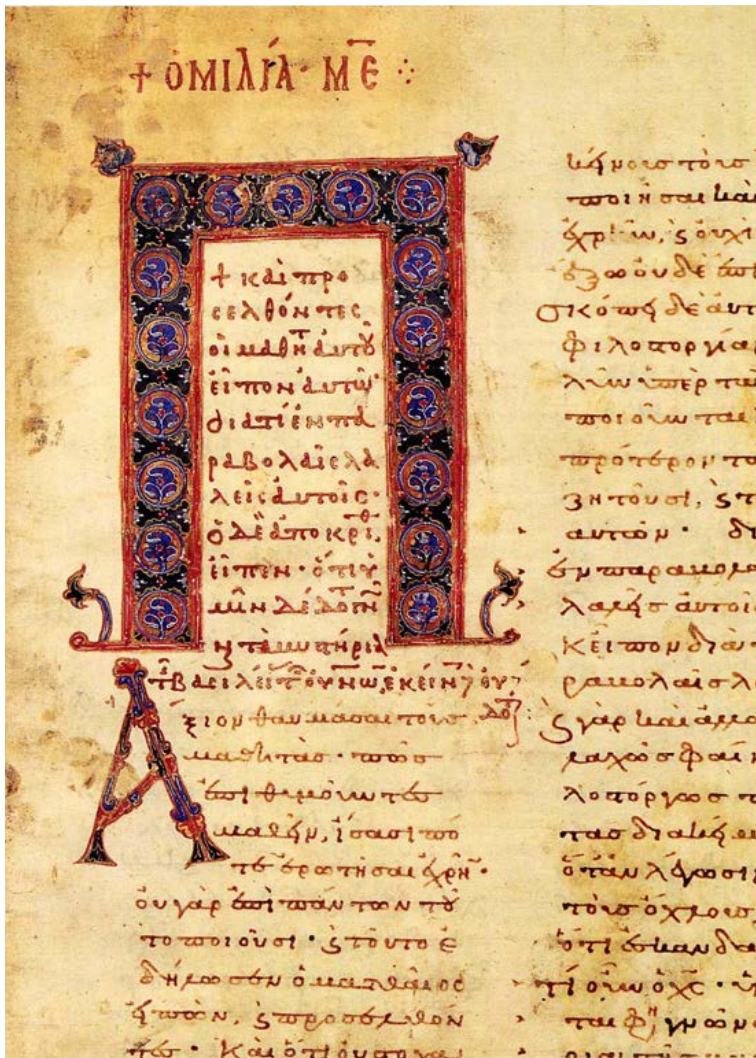 + ὁμιλία· με ⁘
+ καὶ προ
σελθόντες
οἱ μαθητ αὐτοῦ
εἶπον αὐτῶ·
διατί ἐν πα
ραβολαῖς λα
λεῖς αὐτοῖς·
ὁ δὲ ἀποκριθ,
εἶπεν· ὅτι ὑ
μῖν δέδοται γν
ν τὰ μυστήρια
τ βασιλεί τ οὐνῶν, ἐκείν οὐ
δοτ
ἄξιον θαυμάσαι τοὺς
μαθητὰς· πῶς
ἐπιθυμοῦντες
μαθεῖν, ἴσασι πό
τε ἐρωτῆσαι χρή·
οὐ γὰρ ἐπὶ πάντων τοῦ
το ποιοῦσι· ϛ τοῦτο ἐ
δήλωσεν ὁ ματθαῖος
εἰπὼν, ϛ προσελθόν
τες· Καὶ ὅτι οὐ στοχα
κείνοις τοῖς
ποιῆσαι κα
ἐχρῆν, ϛ οὐχὶ
ἔξω οὐδὲ ἐπὶ
σκόπει δὲ αὐτ
φιλοστοργίαν
λὴν ὑπὲρ τῶ
ποιοῦνται
πρότερον το
ζητοῦσι, ϛ τ
αὐτῶν· δι
ἐν παραβολα
λαλεῖς αὐτοι
Κ εἶπον διατ
ραβολαῖς λα
ϛ γὰρ καὶ ἀλλα
φαίν
λοστόργως π
τας διακειμ
ὅταν λέγωσι
τοὺς ὄχλους
ὅτι ἐσκανδα
τί οὖν ὁ χς· ὑ
ται φη, γνῶν